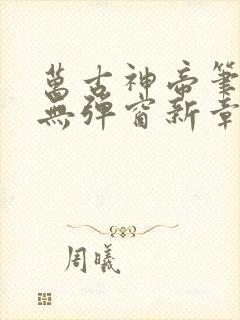 萬古神帝筆
無彈窗新章
周曦